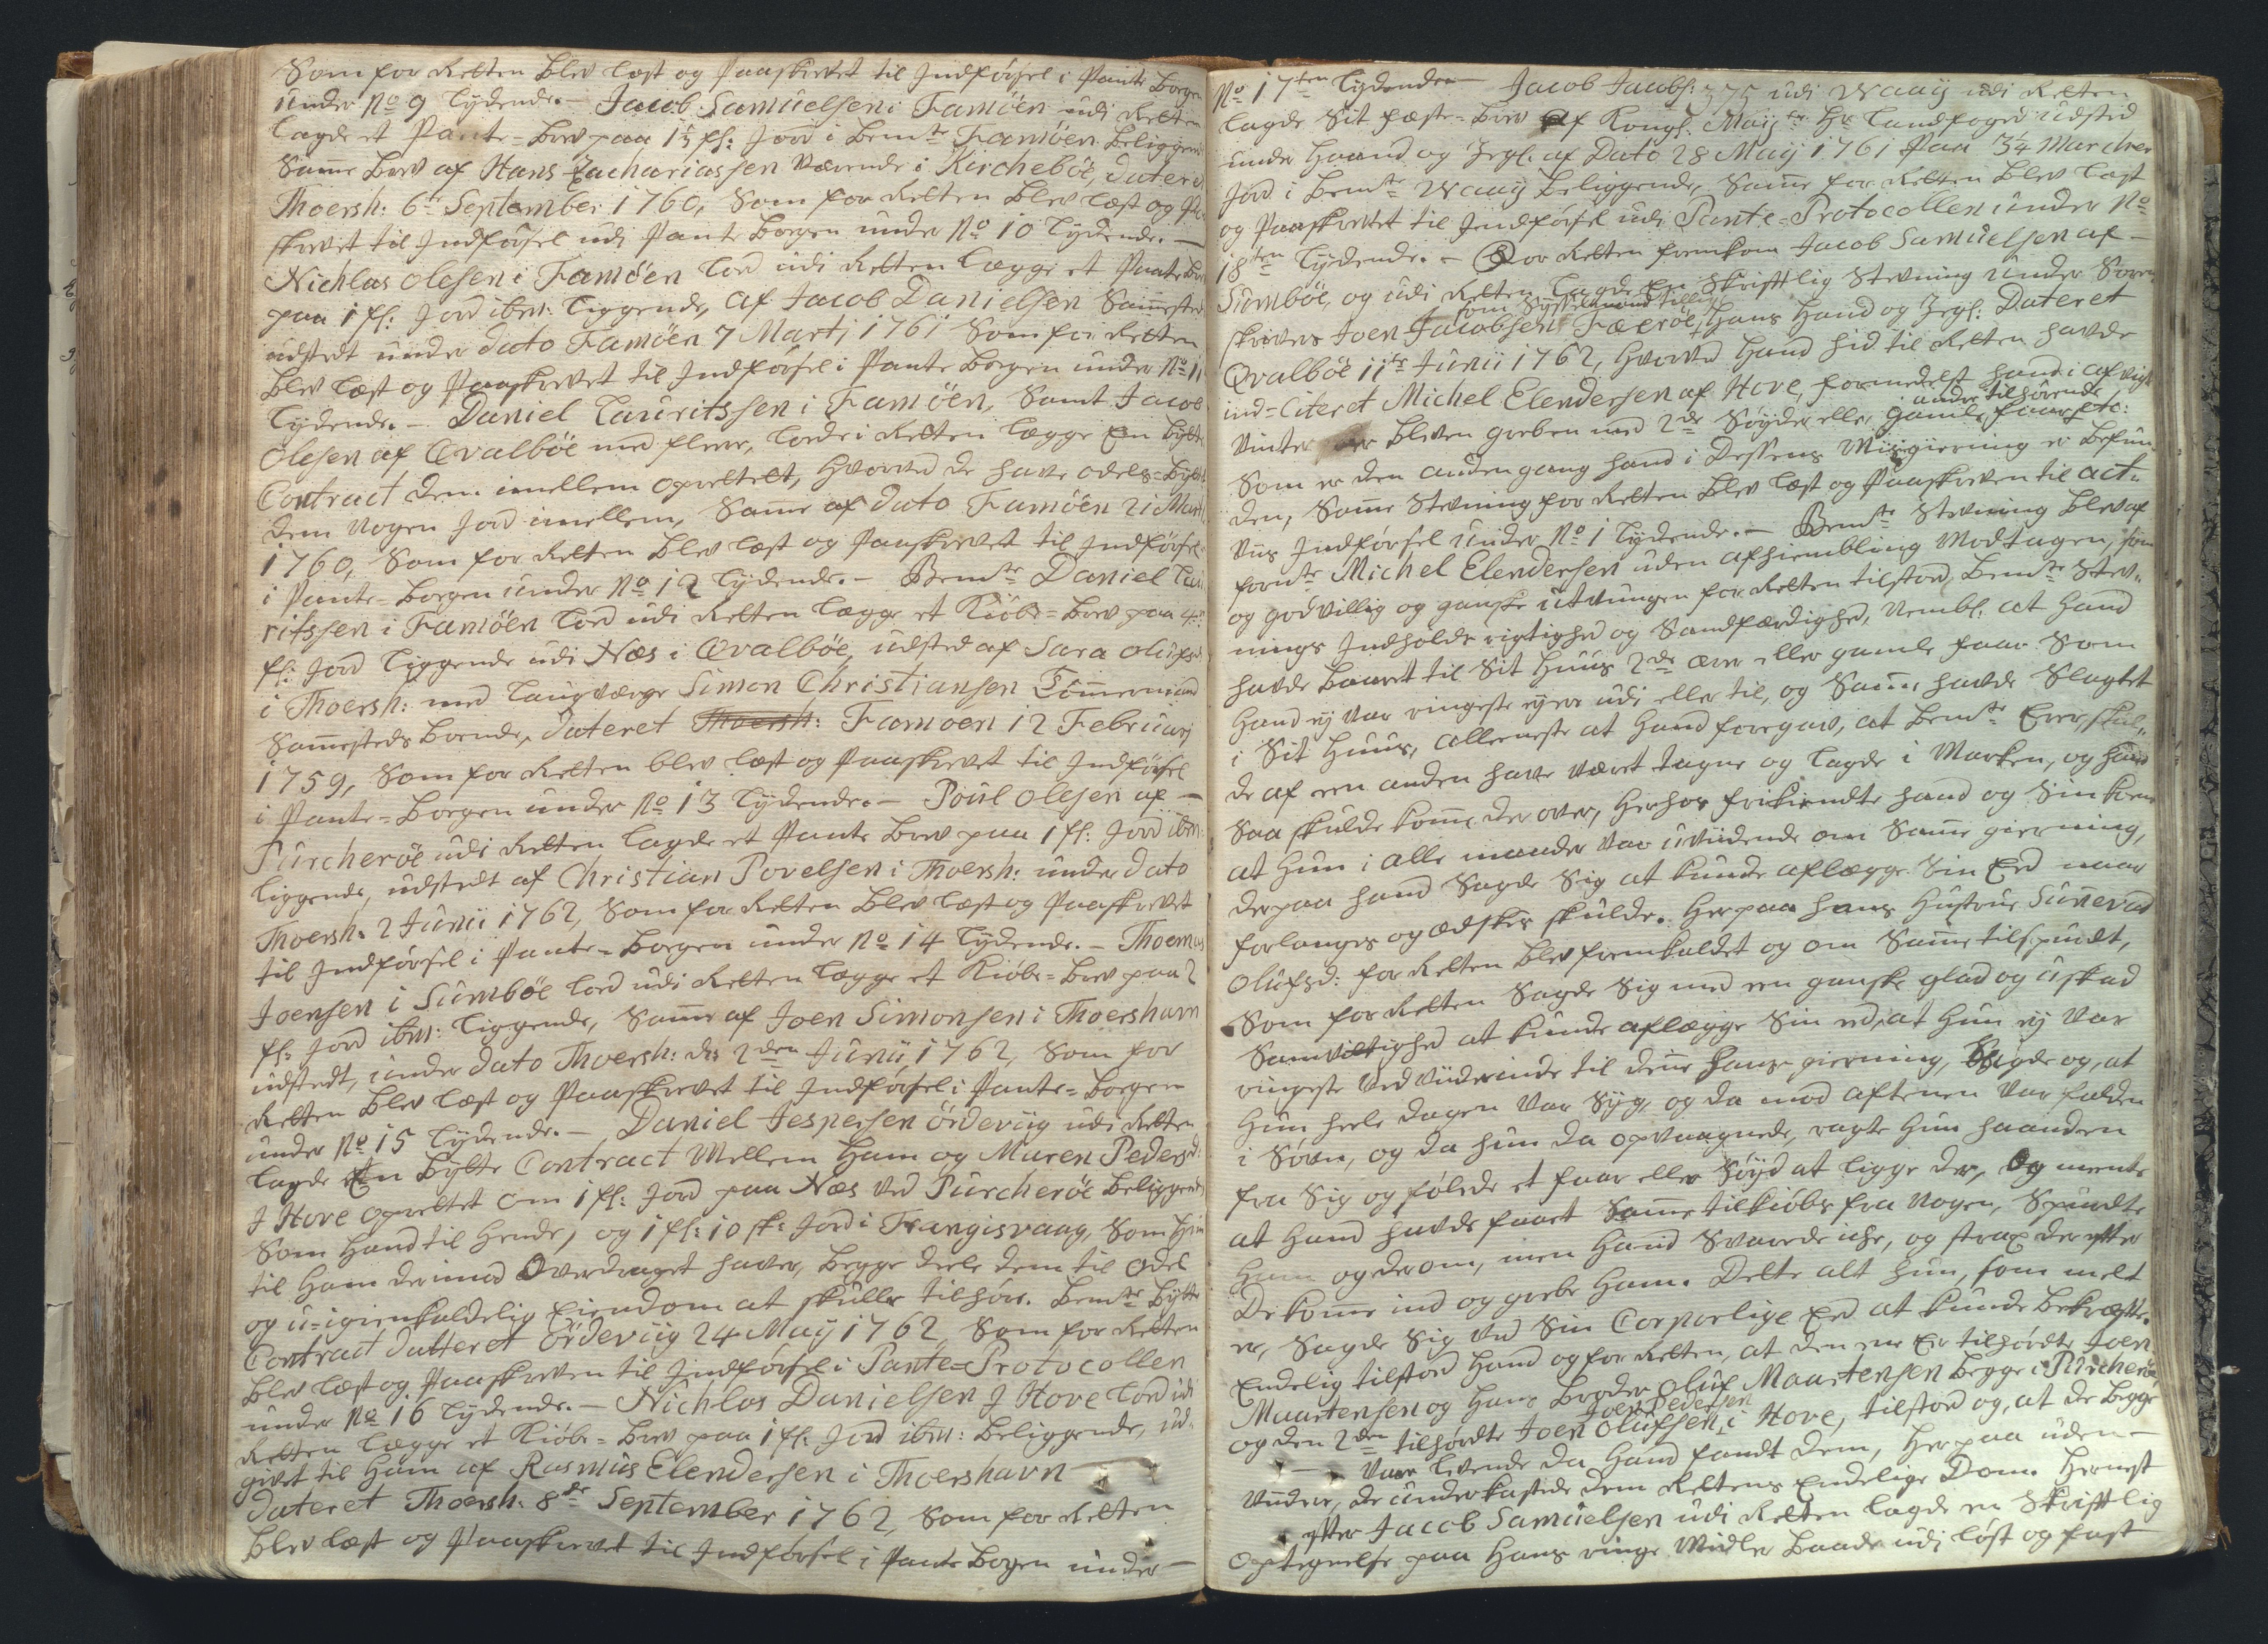 Som for Retten blev læst og Paaskrevet til Indförsel i Pante Bogen
under No 9 Lydende. – Jacob Samuelsen i Famöen udi Retten
lagde et Pante-Brev paa 1½ fl: Jord i bemte Famöen beliggende
Samme brev af Hans Zachariassen værende i Kircheböe, dateret
Thoersh: 6te September 1760, Som for Retten blev læst og Paa-
skrevet til Indförsel udi Pante Bogen under No 10 Lydende. –
Nichlas Olesen i Famöen lod udi Retten lægge et Pante Brev
paa 1 fl: Jord ibm: liggende, af Jacob Danielsen Samested
udstedt under dato Famöen 7 Martj 1761 Som for Retten
blev læst og Paaskrevet til Indförsel i Pante Bogen under No 11
Lydende. – Daniel Lauritssen i Famöen, Samt Jacob
Olesen af Qvalböe med flere, lode i Retten lægge En Bytte
Contract dem imellem oprettet, hvorved de have odels-Byttet
dem nogen Jord imellem, Samme af dato Famöen 21 Martj
1760, Som for Retten blev læst og Paaskrevet til Indförsel
i Pante-Bogen under No 12 Lydende. – Bemte Daniel Lau-
ritssen i Famöen lod udi Retten lægge et Kiöbe-Brev paa 4re
fl: Jord liggende udi Næs i Qvalböe, udsted af Sara Olufsd:
i Thoersh: med Laugværge Simon Christiansen Tömmermand
Sammesteds boende, dateret Thoersh: Famöen 12 Februarj
1759, Som for Retten blev læst og Paaskrevet til Indförsel
i Pante-Bogen under No 13 Lydende. – Poul Olesen af –
Purcheröe udi Retten lagde et Pante Brev paa 1 fl: Jord ibm:
liggende, udstedt af Christian Povelsen i Thoersh: under dato
Thoersh: 2 Junii 1762, Som for Retten blev læst og Paaskrevet
til Indförsel i Pante-Bogen under No 14 Lydende. – Thoemas
Joensen i Sumböe lod udi Retten lægge et Kiöbe-Brev paa 2
fl: Jord ibm: liggende, Samme af Joen Simonsen i Thoershavn
udstedt, under dato Thoersh: ds 2den Junii 1762, Som for
Retten blev læst og Paaskrevet til Indförsel i Pante-Bogen
under No 15 Lydende. – Daniel Jespersen Ördeviig udi Retten
lagde En Bytte Contract Mellem ham og Maren Pedersd:
J Hove oprettet om 1 fl: Jord paa Næs ved Purcheröe beliggende
Som hand til hende, og 1 fl: 10 sk: Jord i Frangisvaag, Som hun
til ham derimod Overdraget haver, begge deele dem til Odel
og u-igienkaldelig Eiendom at skulle tilhöre. Bemte Bytte
Contract datteret Ördeviig 24 Maij 1762, Som for Retten
blev læst og Paaskreven til Indförsel i Pante-Protocollen
under No 16 Lydende. – Nichlas Danielsen J Hove lod udi
Retten lægge et Kiöbe-Brev paa 1 fl: Jord ibm: beliggende, ud-
givet til ham af Rasmus Elendersen i Thoershavn –
dateret Thoersh: 8de September 1762, Som for Retten
blev læst og Paaskrevet til Indförsel i Pante Bogen under –
No 17ten Lydende – Jacob Jacobs: udi Waaij udi Retten
lagde Sit fæste-Brev af Kongl: Maijts Hr Landfoged udsted
under haand og Zegl: af Dato 28 Maij 1761 Paa 3¼ Marcher
Jord i bemte Waaij beliggende, Samme for Retten blev læst
og Paaskrevet til Indförsel udi Pante-Protocollen under No
18ten Lydende. – For Retten fremkom Jacob Samuelsen af –
Sumböe, og udi Retten lagde en Skriftlig Stevning under Soren-
som Sysselmand tillige
skrivers Joen Jacobsen Færöe, hans Haand og Zegl: Dateret
Qvalböe 11te Junii 1762, hvorved hand hid til Retten havde
ind-Citeret Michel Elendersen af Hove, formedelst hand i afvigte
andre tilhörende
Vinter er bleven greben med 2de Söyder eller gamle faar etc:
Som er den anden gang hand i Dessens Misgierning er befun-
den, Samme Stevning for Retten blev læst og Paaskreven til act-
viis Indförsel under No 1 Lydende. – Bemte Stevning blev af
formte Michel Elendersen uden afhiembling Modtagen, som
og godvillig og ganske utvungen for Retten tilstod, bemte Stev-
nings Indholds rigtighed og Sandfærdighed, Nembl: at hand
havde baaret til Sit Huus 2de ær eller gamle faar Som
hand ej var ringeste ejer udi eller til, og Samme havde Slagtet
i Sit Huus, alleeneste at hand foregav, at bemte Ærer skul-
de af een anden have været tagne og lagde i Marken, og hand
Saa skulde komme der over, herhos frikiendte hand og Sin kone
at hun i alle maader var uviidende om Samme gierning,
derpaa hand Sagde Sig at kunde aflægge Sin Eed naar
forlanges og ædskes skulde. Herpaa hans Hustrue Sunevad
Olufsd: for Retten blev fremkaldet og om Samme tilspurdt,
Som for Retten Sagde Sig med een ganske glad og uskad
Samvittighed at kunde aflægge Sin ed, at hun ej var
ringeste Vedviidende til denne hans gierning, Sigde og, at
hun heele dagen var Syg, og da mod aftenen var falden
i Sövn, og da hun da opvaagnede, ragte hun haanden
fra Sig og fölede et faar eller Söyd at ligge der, Og mente
at hand havde faaet Samme tilkiöbs fra nogen, Spurdte
ham og derom, men Hand Svarede iche, og strax derefter
De komme ind og grebe ham. Dette alt hun, som melt
er, Sagde Sig ved Sin Corporlige Eed at kunde bekræfte.
Endelig tilstod hand og for Retten, at den ene Ær tilhördte Joen
Maartensen og hans broder Oluf Maartensen begge i Purcheröe
Joen Pedersen
og den 2den tilhördte Joen Olufsen, i Hove, tilstod og, at de begge
– vaar levende da hand fandt dem, herpaa uden –
vudere, de underkastede dem Rettens Endelige Dom. Hernest
efter Jacob Samuelsen udi Retten lagde en Skriftlig
Optegnelse paa hans ringe Midler baade udi löst og fast